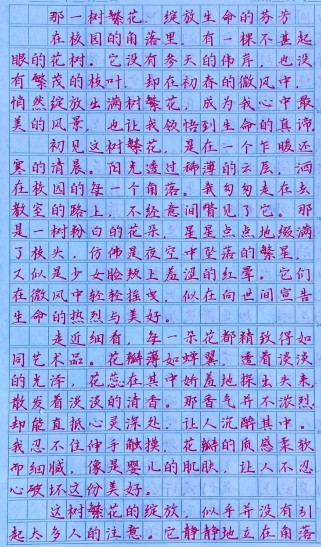 那一树繁花，绽放生命的芬芳
在校园的角落里，有一棵不甚起
眼的花树。它没有参天的伟岸，也没
有繁茂的枝叶，却在初春的微风中，
悄然绽放出满树繁花，成为我心中最
美的风景，也让我领悟到生命的真谛。
初见这树繁花，是在一个乍暖还
寒的清晨。阳光透过稀薄的云层，洒
在校园的每一个角落。我匆匆走在去
教室的路上，不经意间瞥见了它。那
是一树粉白的花朵，星星点点地缀满
了枝头，仿佛是夜空中坠落的繁星，
又似是少女脸颊上羞涩的红晕。它们
在微风中轻轻摇曳，似在向世间宣告
生命的热烈与美好。
走近细看，每一朵花都精致得如
同艺术品。花瓣薄如蝉翼，透着淡淡
的光泽，花蕊在其中娇羞地探出头来，
散发着淡淡的清香。那香气并不浓烈，
却能直抵心灵深处，让人沉醉其中。
我忍不住伸手触摸，花瓣的质感柔软
而细腻，像是婴儿的肌肤，让人不忍
心破坏这份美好。
这树繁花的绽放，似乎并没有引
起太多人的注意。它静静地立在角落